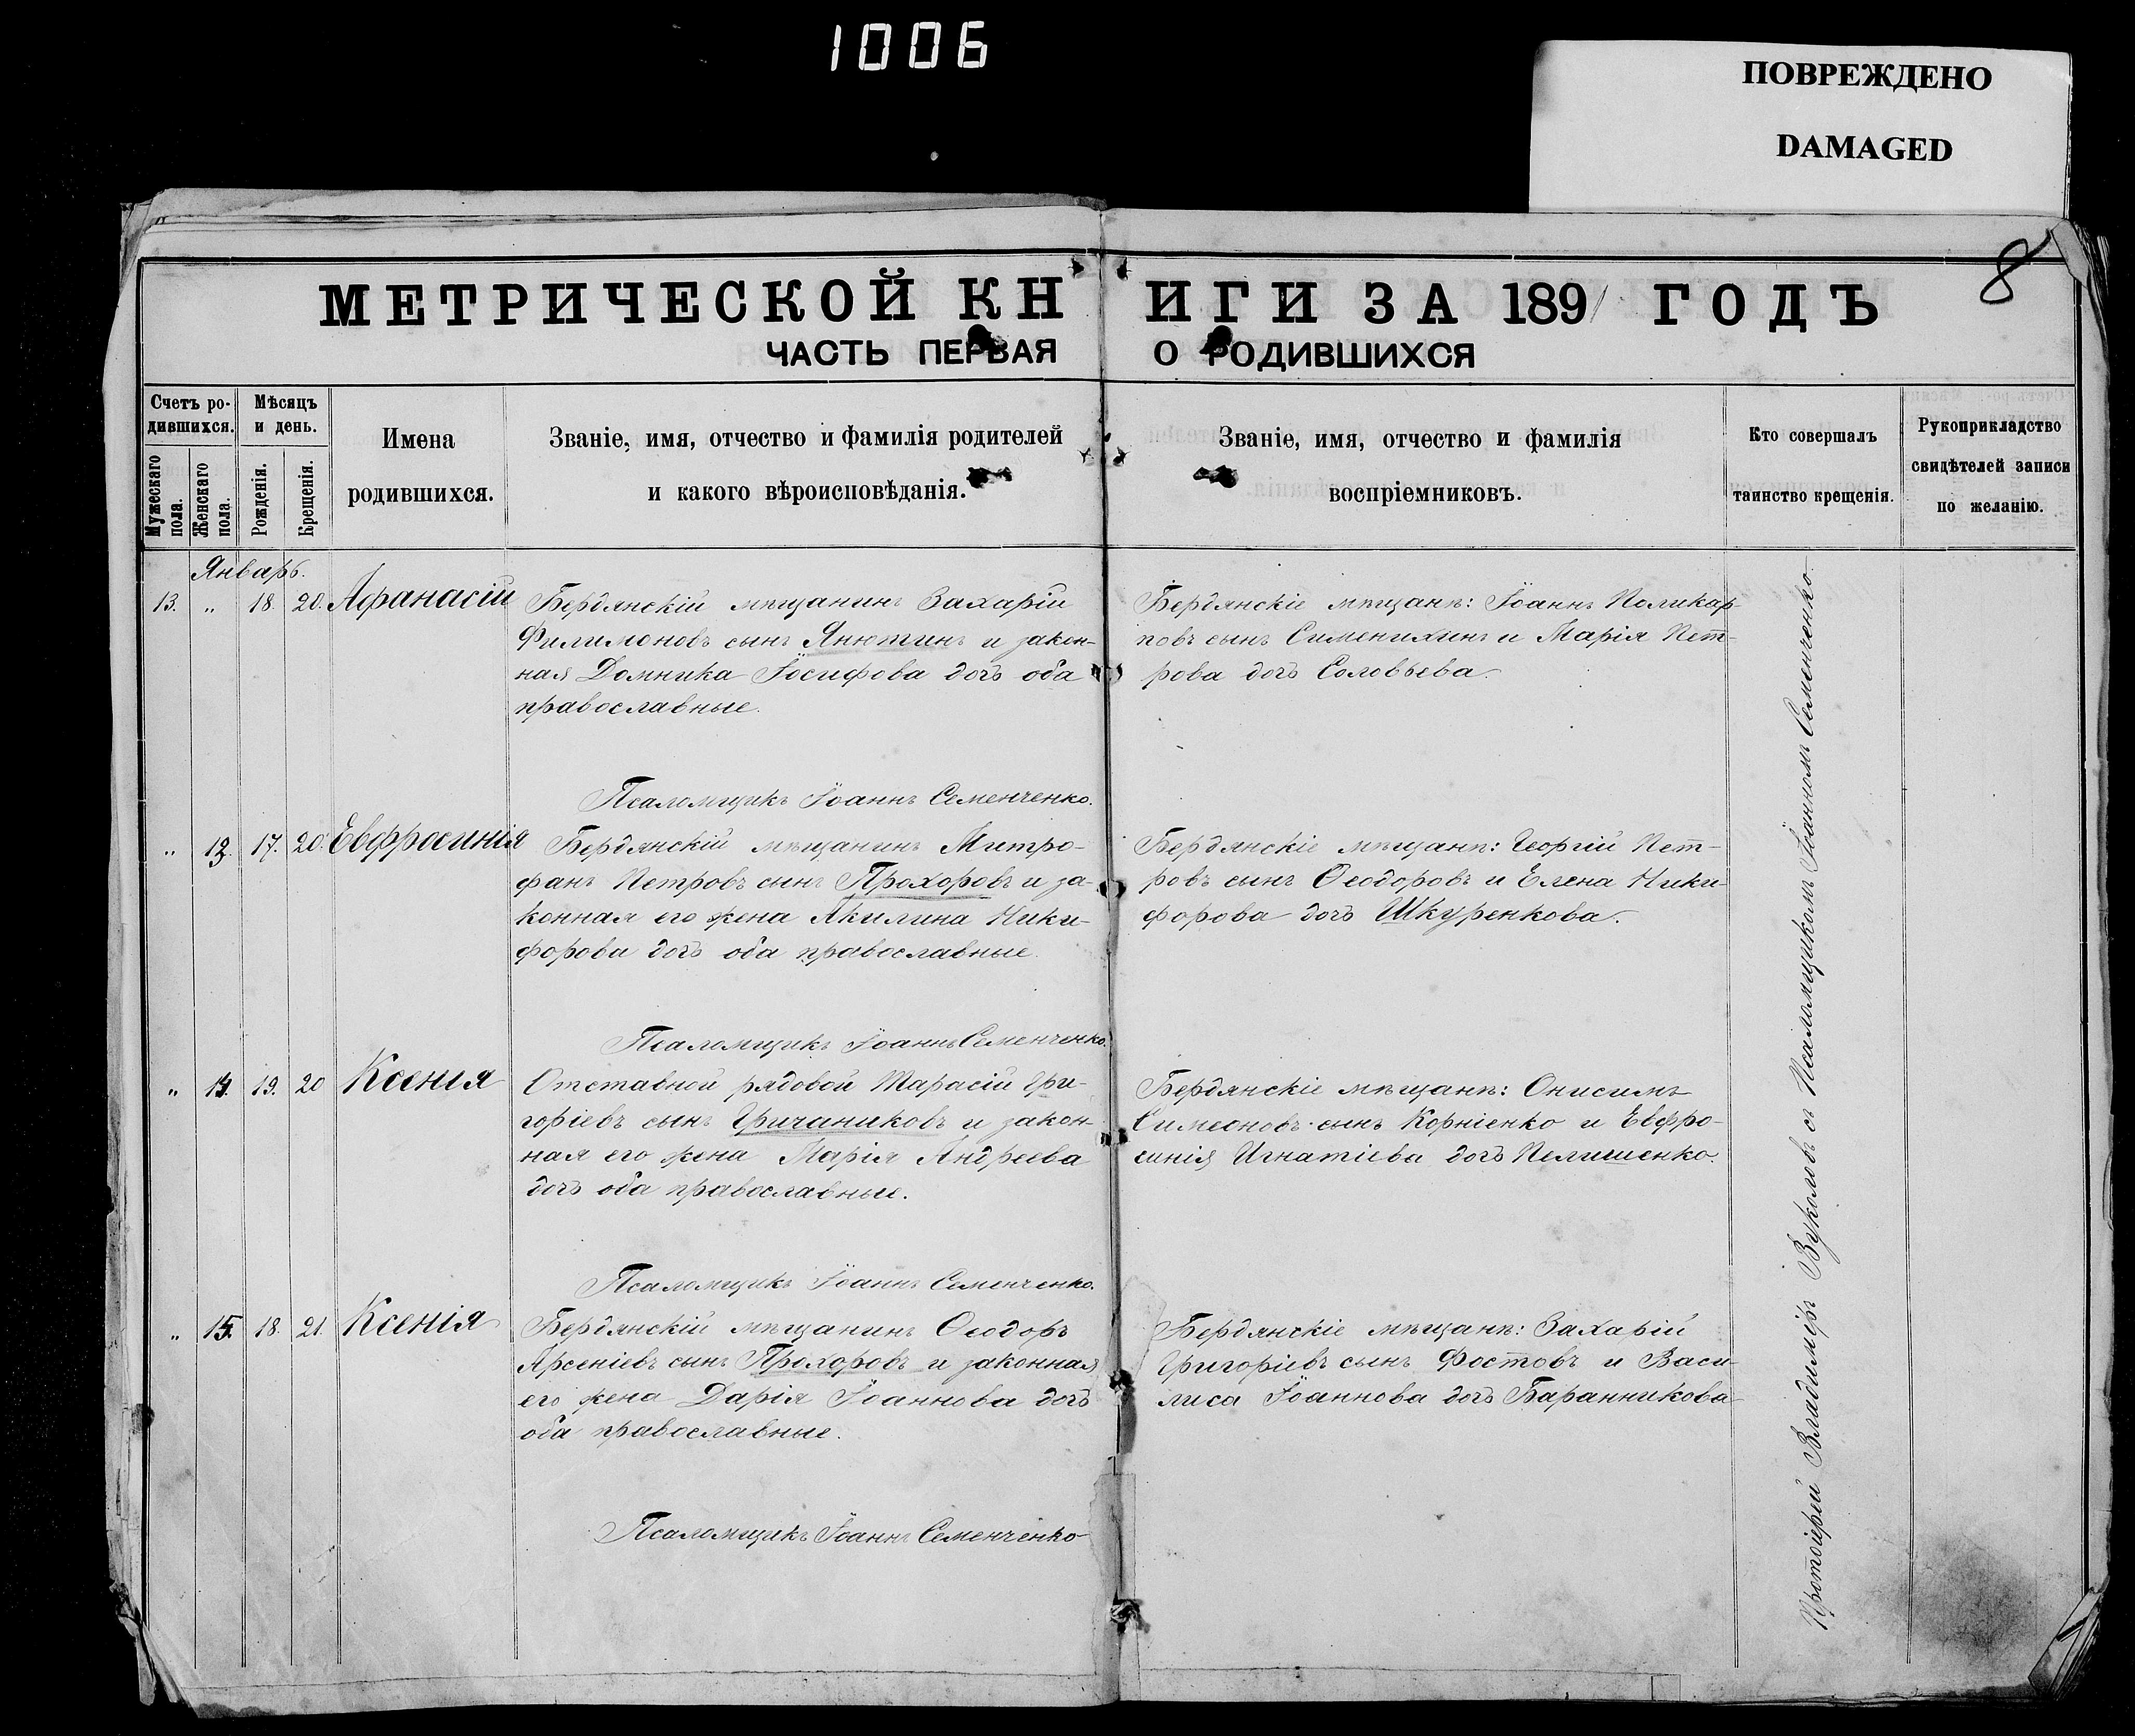 1006
ПОВРЕЖДЕНО
DAMAGED
8
МЕТРИЧЕСКОЙ КНИГИ ЗА 1891 ГОДЪ
ЧАСТЬ ПЕРВАЯ О РОДИВШИХСЯ
Счетъ ро-
дившихся.
Мужескаго
пола.
Женскаго
пола.
Мѣсяцъ
и день.
Рожденія.
Крещенія.
Имена
родившихся.
Званіе, имя, отчество и фамилія родителей
и какого вѣроисповѣданія.
Званіе, имя, отчество и фамилія
воспріемниковъ.
Кто совершалъ
таинство крещенія.
Рукоприкладство
свидѣтелей записи
по желанію.
Январь.
13. „ 18. 20. Афанасій
Бердянскій мѣщанинъ Захарій
Филимоновъ сынъ Янютинъ и закон-
ная Домника Іосифова дочь оба
православные.
Псаломщикъ Іоаннъ Семенченко.
Бердянскіе мѣщане: Іоаннъ Поликар-
повъ сынъ Сименихинъ и Марія Пет-
рова дочь Соловьева.
„ 13. 17. 20. Евфросинія
Бердянскій мѣщанинъ Митро-
фанъ Петровъ сынъ Прохоровъ и за-
конная его жена Акилина Ники-
форова дочь оба православные.
Псаломщикъ Іоаннъ Семенченко.
Бердянскіе мѣщане: Георгій Пет-
ровъ сынъ Ѳеодоровъ и Елена Ники-
форова дочь Шкуренкова.
„ 14. 19. 20 Ксенія
Отставной рядовой Тарасій Гри-
горіевъ сынъ Гричаниковъ и закон-
ная его жена Марія Андреева
дочь оба православные.
Псаломщикъ Іоаннъ Семенченко.
Бердянскіе мѣщане: Онисимъ
Симеоновъ сынъ Корніенко и Евфро-
синія Игнатіева дочь Пелишенко.
„ 15. 18. 21. Ксенія
Бердянскій мѣщанинъ Ѳеодоръ
Арсеніевъ сынъ Прохоровъ и законная
его жена Дарія Іоаннова дочь
оба православные.
Псаломщикъ Іоаннъ Семенченко
Бердянскіе мѣщане: Захарій
Григоріевъ сынъ Фостовъ и Васи-
лиса Іоаннова дочь Баранникова
Протоіерей Владиміръ Вуколовъ съ Псаломщикомъ Іоанномъ Семенченко.